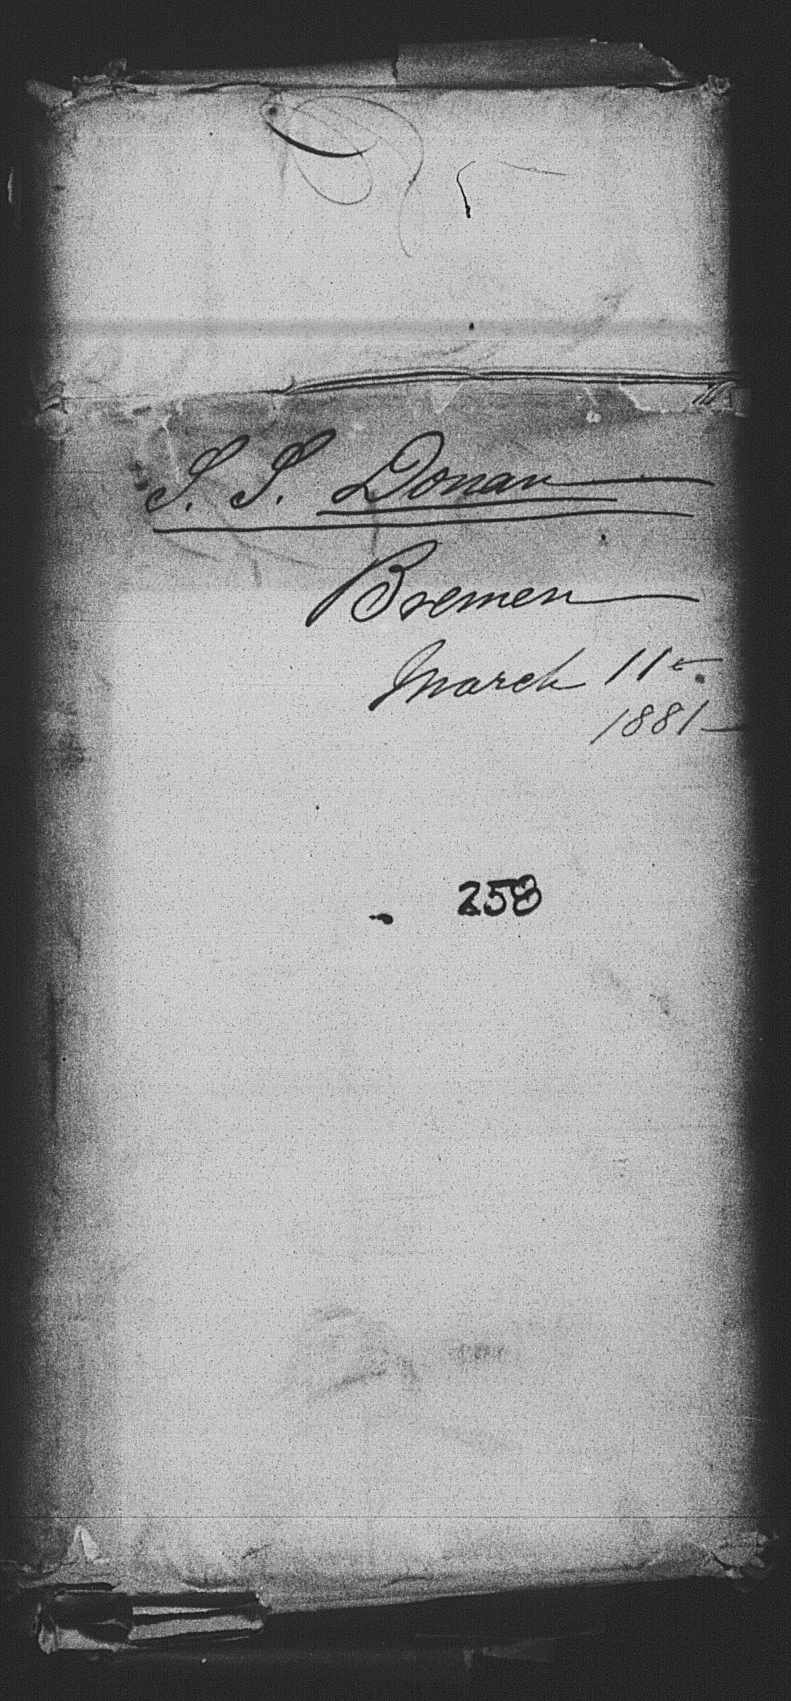 S. S. Donau
Bremen
March 11
1881
258